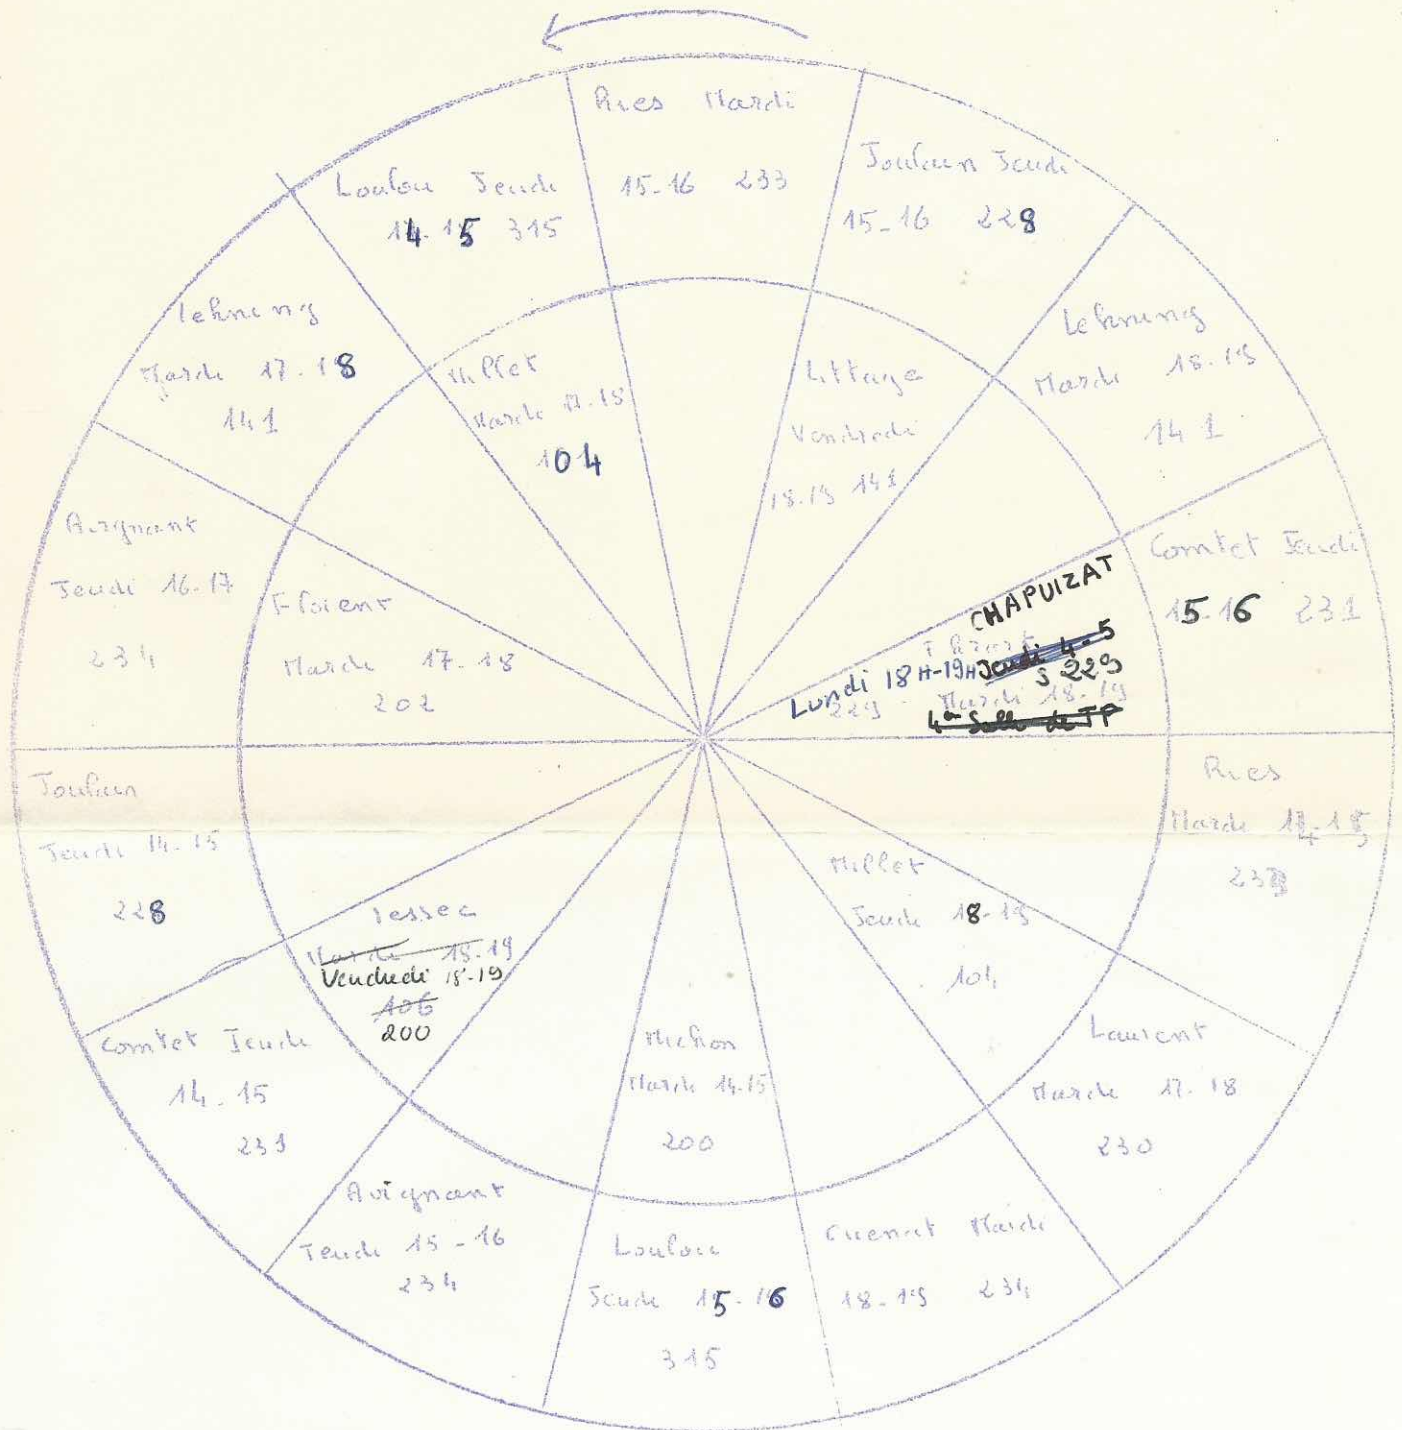 Ries Mardi
15-16 233
Joulain Jeudi
15-16 228
Lehning
Mardi 18-19
141
Comtet Jeudi
15-16 231
Ries
Mardi
Laurent
Mardi 17-18
230
Cuenat Mardi
18-19 234
Loulou
Jeudi 15-16
315
Avignant
Jeudi 15-16
234
Comtet Jeudi
14-15
231
Joulain
Jeudi 14-15
228
Avignant
Jeudi 16-17
234
Lehning
Mardi 17-18
141
Loulou Jeudi
14-15 315
Millet
Mardi 17-18
104
Littaye
Vendredi
18-19 141
CHAPUIZAT
Jeudi 4-5
Lundi 18H-19H S 229
229 Mardi 18-19
Salle de TP
Millet
Jeudi 18-19
104
Michon
Mardi 14-15
200
Tessec
Mardi 18-19
Vendredi 18-19
106
200
Florent
Mardi 17-18
202